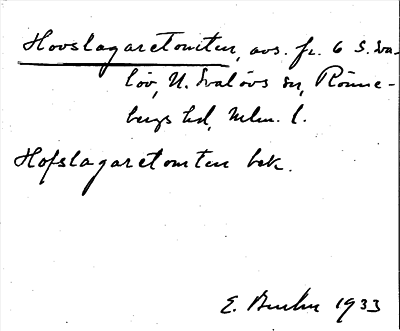 Hovslagaretomten, avs. fr. 6 S. Sva-
löv, N. Svalövs sn, Rönne-
bergs hd, Mlm. l.
Hofslagaretomten bek.
E. 1933